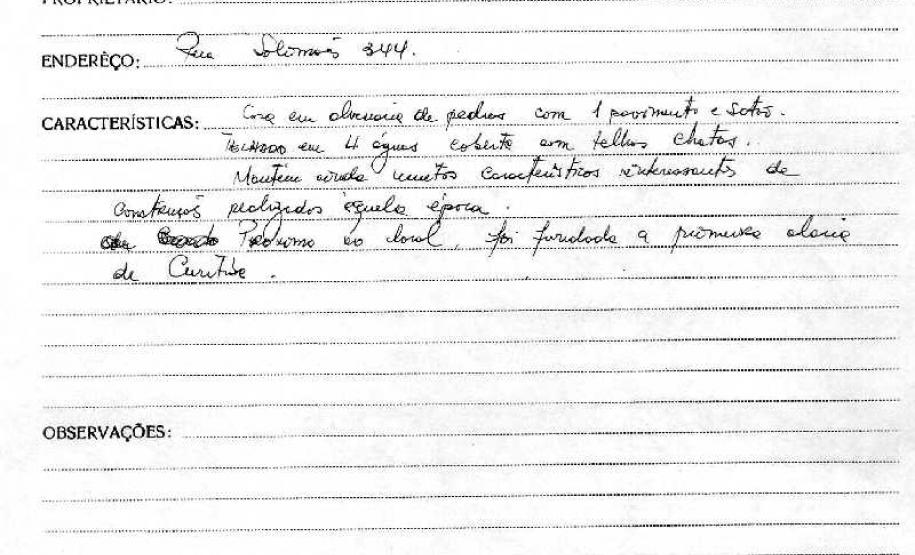 PROPRIETÁRIO:
ENDERÊÇO: Rua Solimões 344.
CARACTERÍSTICAS: Casa em alvenaria de pedras com 1 pavimento e sotão.
TELHADO em 4 águas coberto com telhas chatas.
Mantém ainda muitos característicos interessantes de
construções realizados àquela época.
Próximo ao local, foi fundada a primeira olaria
de Curitiba.
OBSERVAÇÕES: